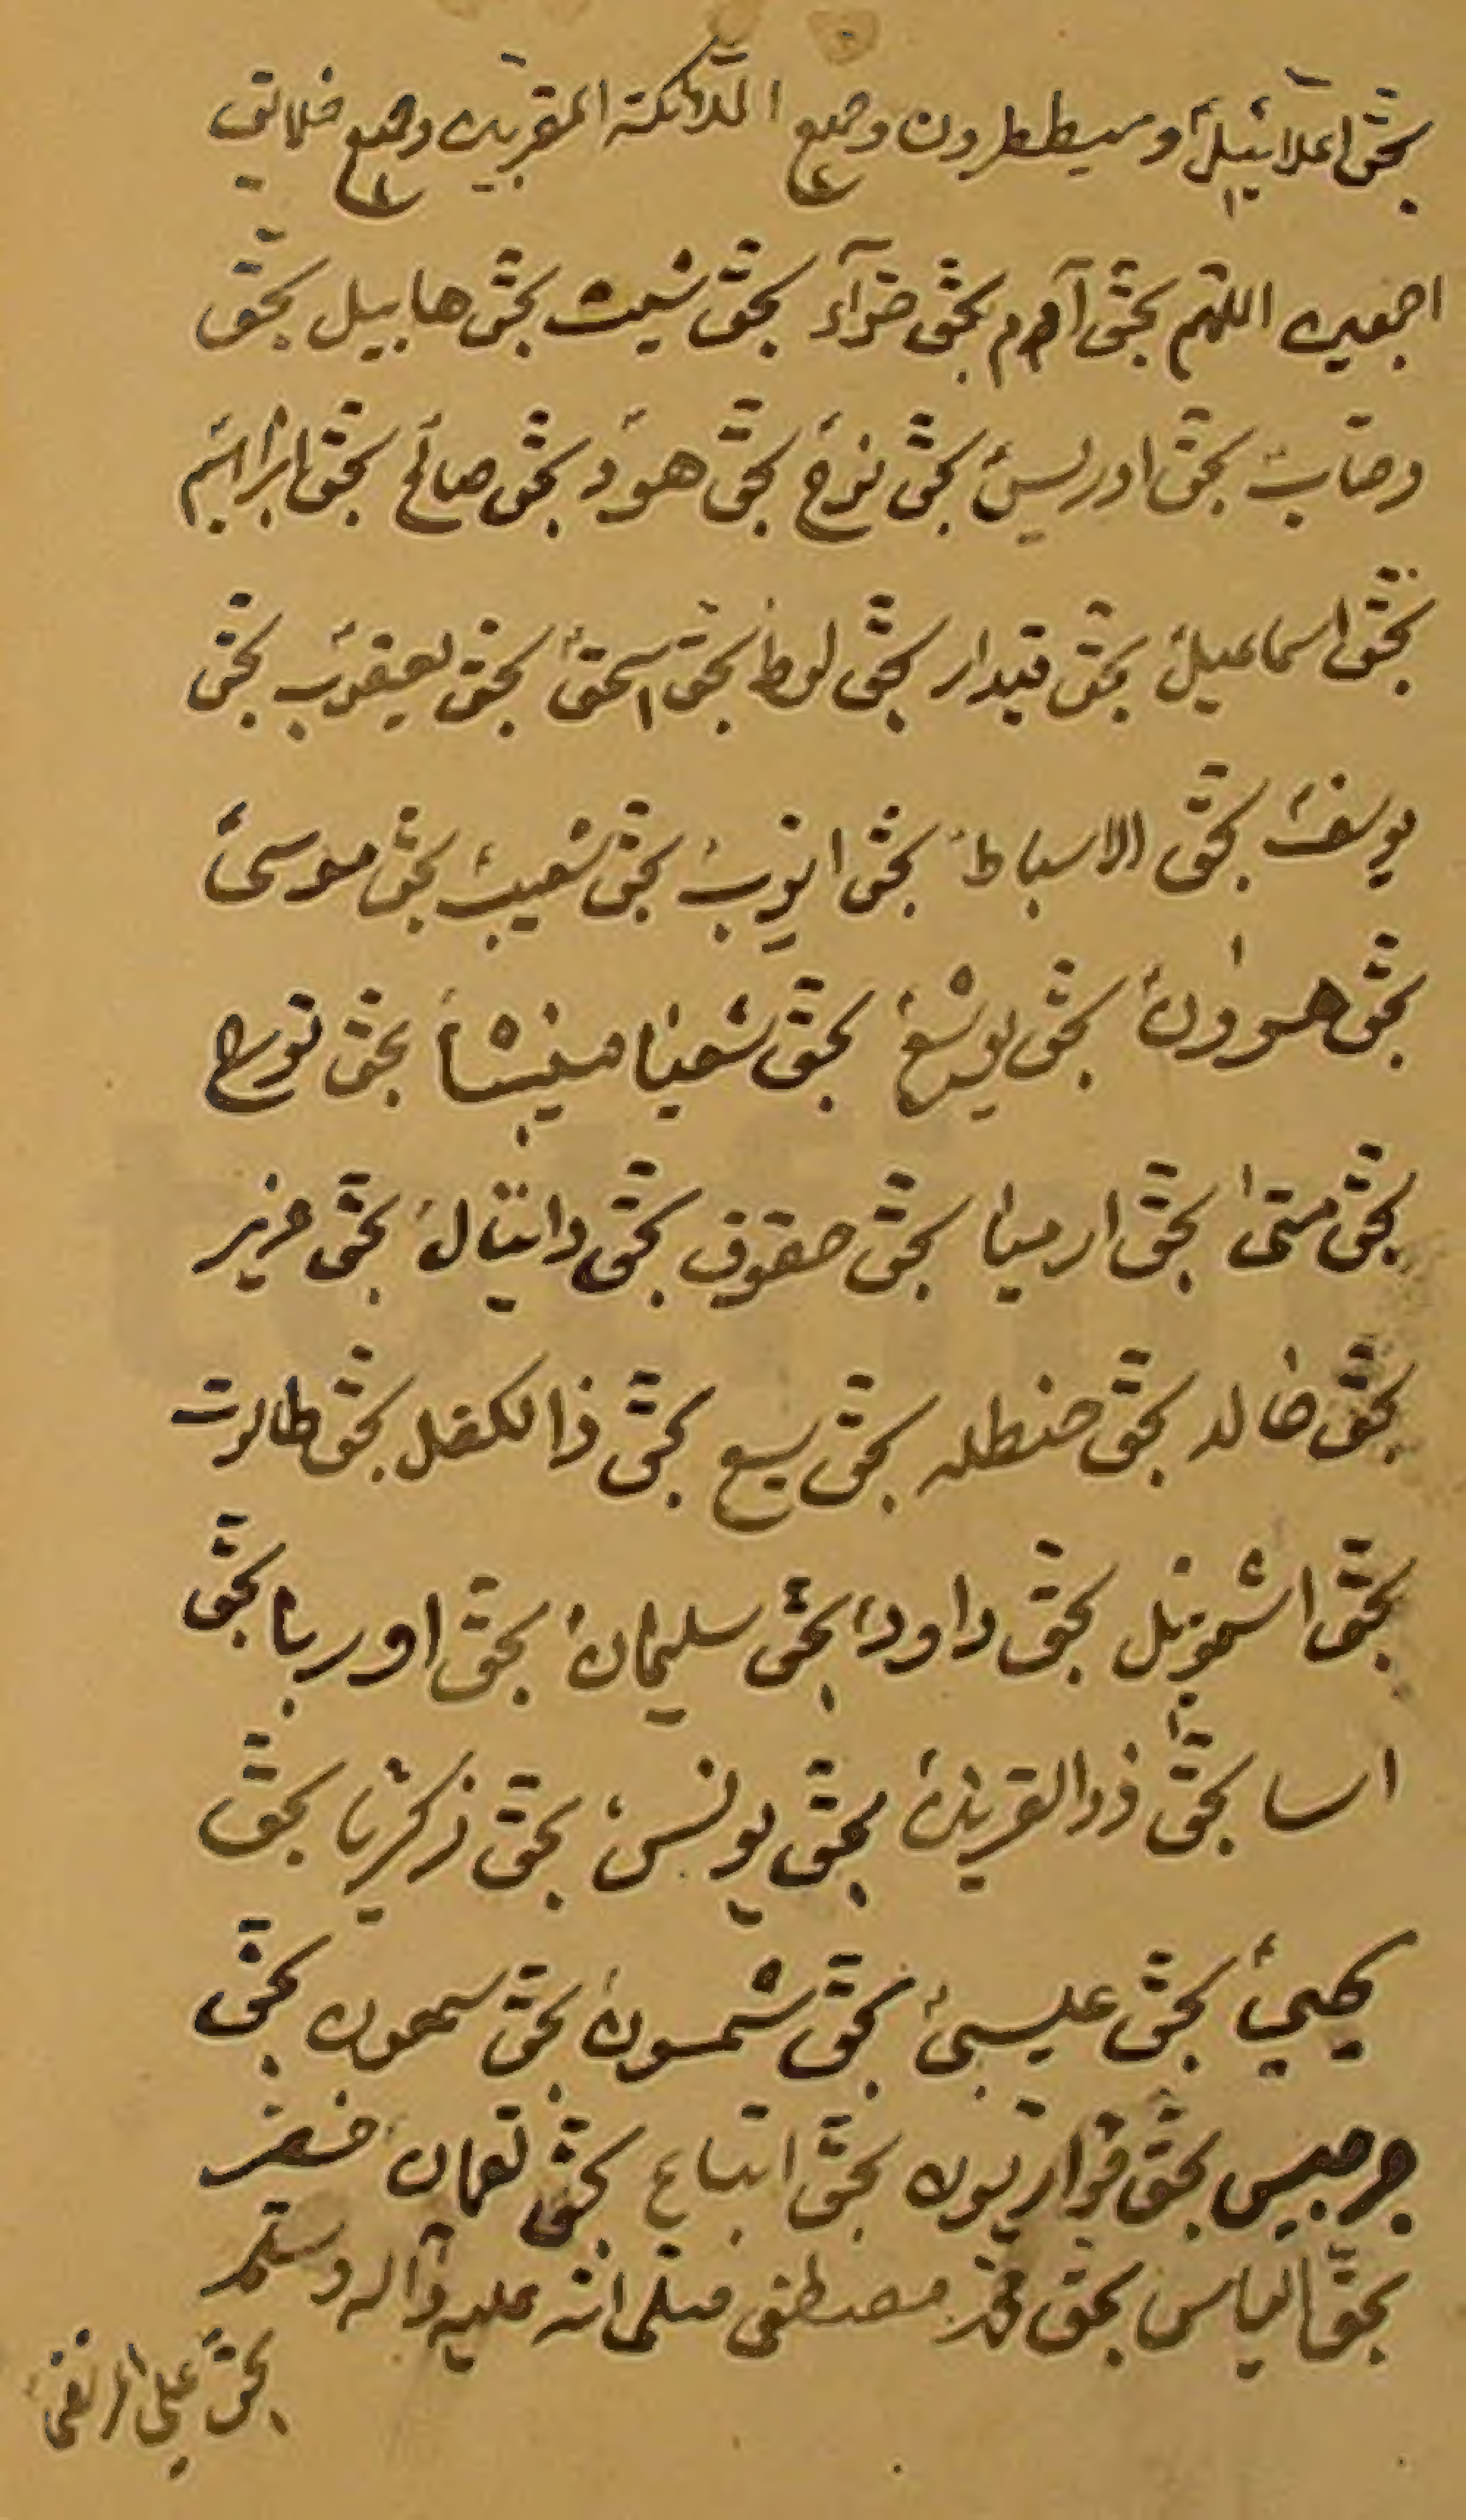 بحق اعلائيل وميططرون وجميع الملائكة المقربين وجميع خلائق
اجمعين اللهم بحق آدم بحق حوّآء بحق شيث بحق هابيل بحق
بحق ادريس بحق نوح بحق هود بحق صالح بحق ابراهيم
بحق اسماعيل بحق قيدار بحق لوط بحق اسحق بحق يعقوب بحق
يوسف بحق الاسباط بحق ايوب بحق شعيب بحق موسى
بحق هرون بحق يوشع بحق شعيا ميشا بحق تورخ
بحق متى بحق ارميا بحق حقوق بحق دانيال بحق عزير
بحق خالد بحق حنظله بحق يسع بحق ذالكفل بحق طالوت
بحق اشموئيل بحق داود بحق سليمان بحق اوريا بحق
اسا بحق ذوالقرنين بحق يونس بحق زكريا بحق
يحيى بحق عيسى بحق شمسون بحق سمعون بحق
جرجيس بحق حواريون بحق اتباع بحق لقمان خضر
بحق الياس بحق محمد مصطفى صلى الله عليه وآله وسلم
بحق على المرتضى